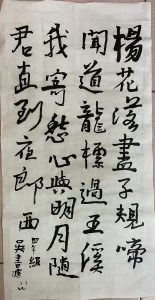 楊花落盡子規啼
聞道龍標過五溪
我寄愁心與明月隨
君直到夜郎西
四年級
吳書